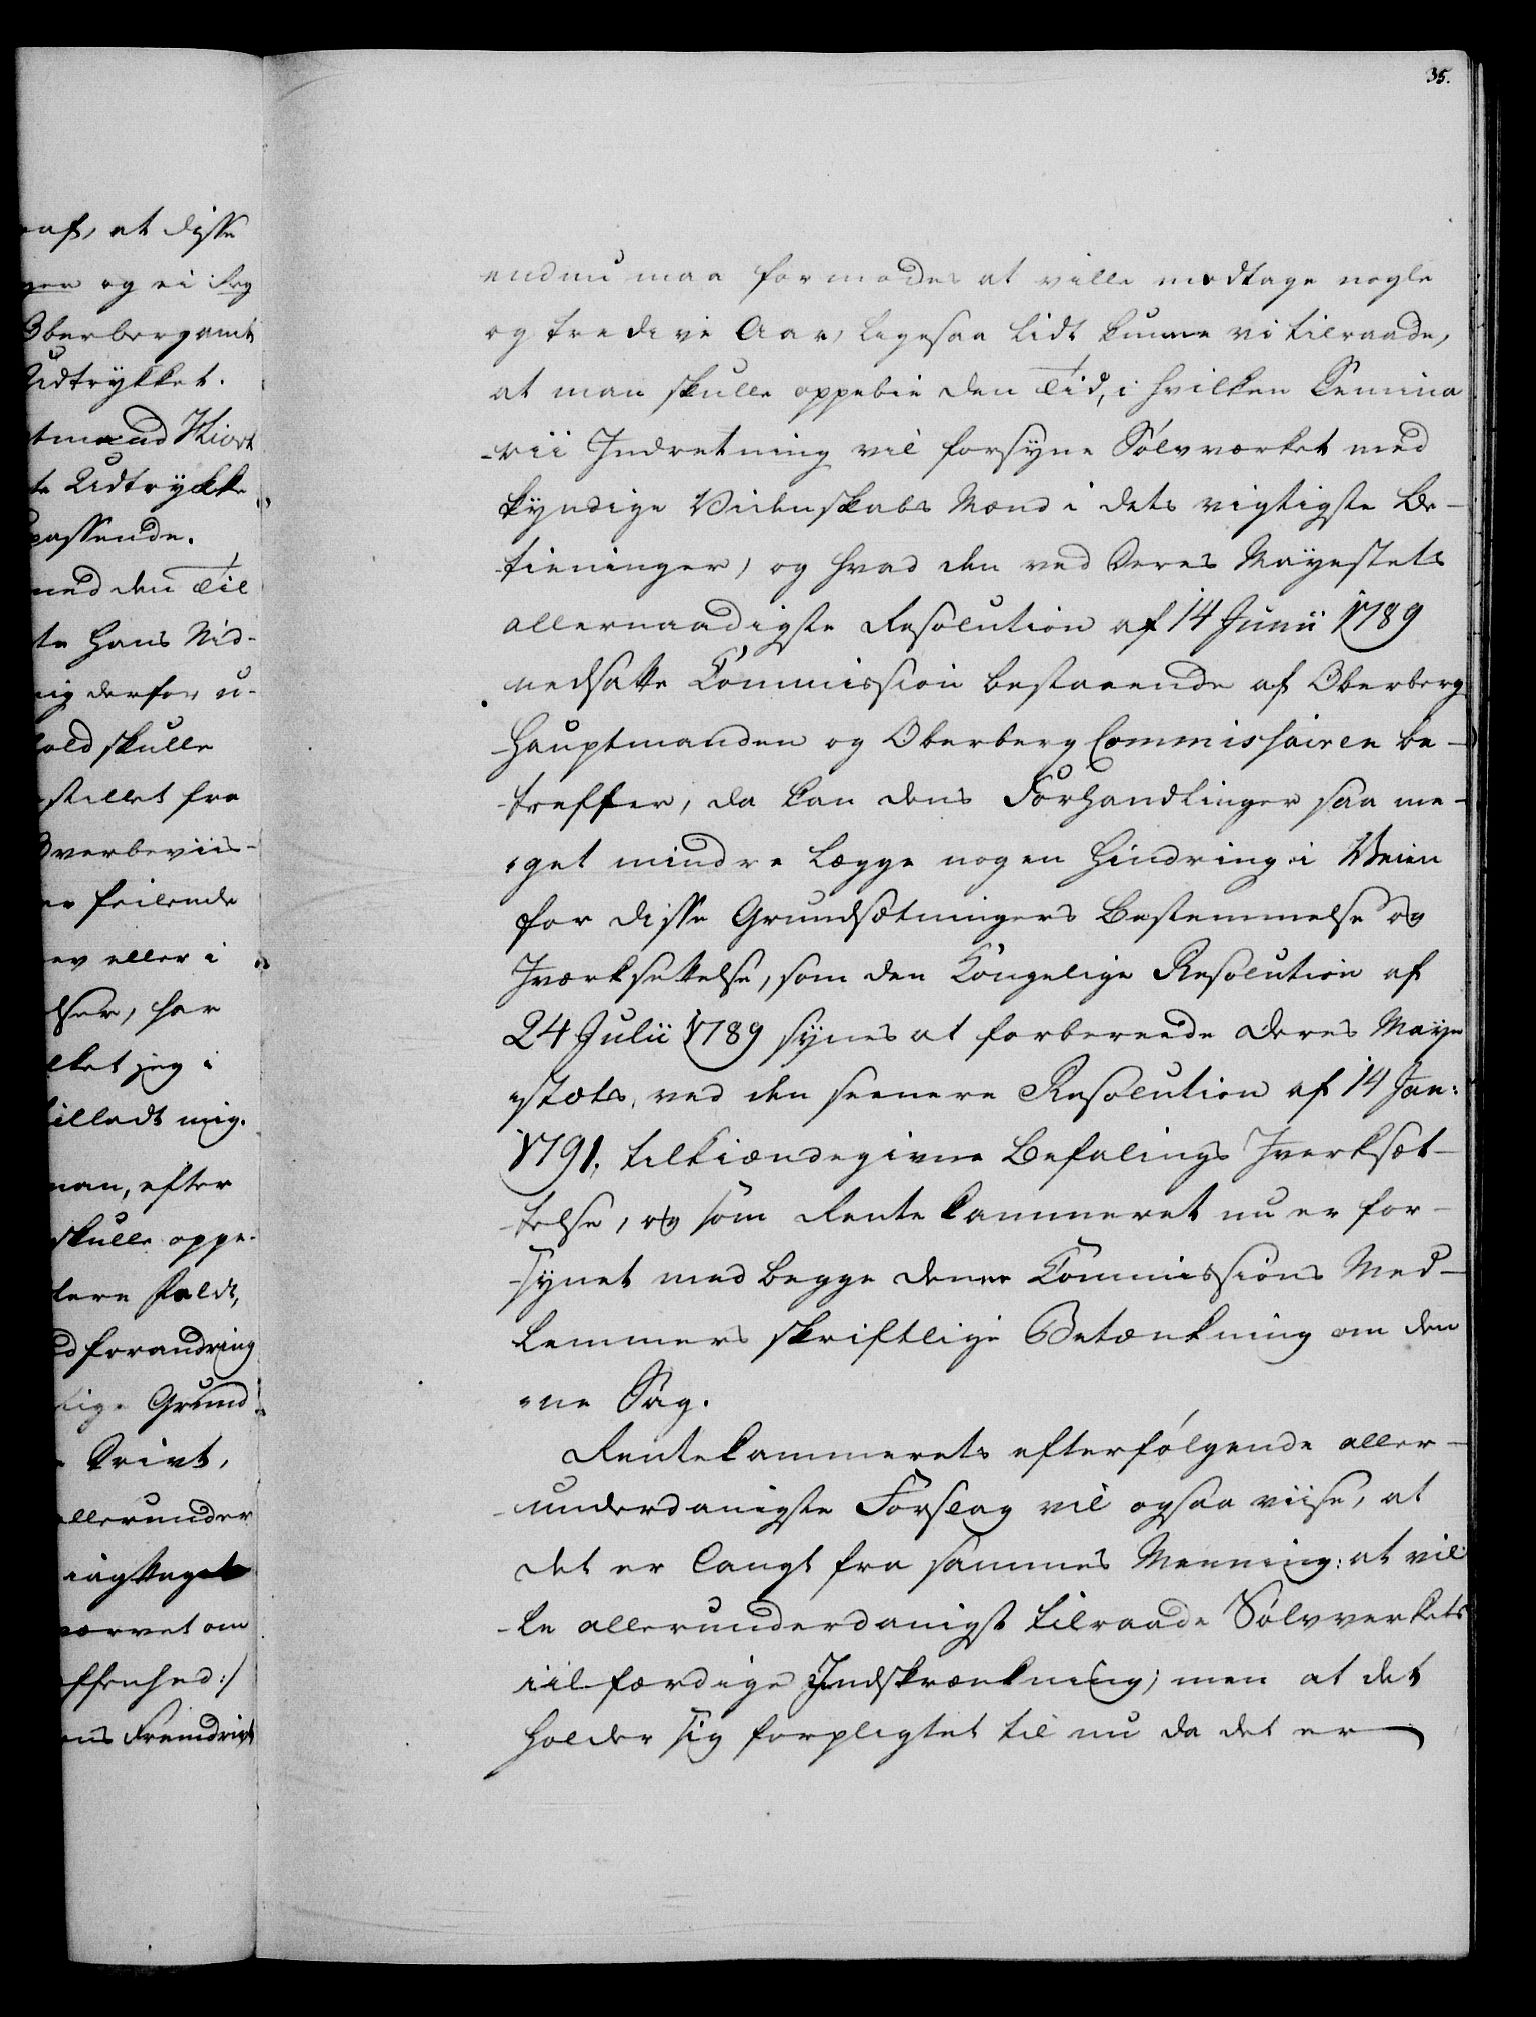 35.
eaf, at disse
gen og ei seg
Oberbergamts
Udtrykket.
tmand Hiort
te Udtrykke
passende.
med den Tiil
te Hans Nid-
nig derfor u-
hold skulle
stillet fra
Overbeviis-
er feilende
ev eller i
lser, har
lket jeg i
tilladt mig.
man, efter
skulle oppe-
tere Faldt,
ed forandring
lige Grund
Drivt,
allerunder
iagttaget
værvet om
ffenhed :/
ens Fremdrivt
endnu maa formodes at ville medtage nogle
og tredive Aar, ligesaa lidt kunne vi tilraade,
at man skulle oppebie den Tid, i hvilken Semina
-rii Indretning vil forsyne Sølvværket med
kyndige Videnskabs Mænd i dets vigtigste Be-
-tieninger, og hvad den ved Deres Mayestets
allernaadigste Resolution af 14 Junii 1789
nedsatte Commission bestaaende af Oberberg
-Hauptmanden og Oberberg Commissairen be-
-treffer, da kan dens Forhandlinger saa me-
-get mindre lægge nogen Hindring i Veien
for disse Grundsætningers Bestemmelse og
Iværksettelse, som den Kongelige Resolution af
24 Julii 1789 synes at forbereede Deres Maye
-stæts, ved den seenere Resolution af 14 Jan:
1791, tilkiændegivne Befalings Iverksæt-
-telse, og som Rentekammeret nu er for-
-synet med begge denne Commissions Med-
lemmers skriftlige Betænkning om den
-ne Sag.
Rentekammerets efterfølgende aller-
-underdanigste Forslag vil ogsaa viise, at
det er langt fra sammes Meening: at vil
-le allerunderdanigst tilraade Sølvverkets
iilfærdige Indskrænkning; men at det
holder sig forpligtet til nu da det er